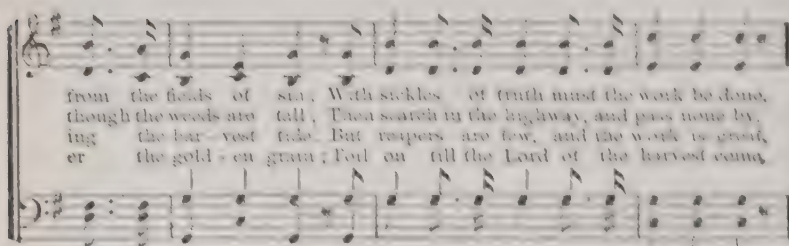 from the fields of sin, With sickles of truth must the work be done,
though the weeds are tall, Then search in the highway, and pass none by,
ing the har-vest tide. But reapers are few, and the work is great,
er the gold-en grain; Toil on till the Lord of the harvest come,